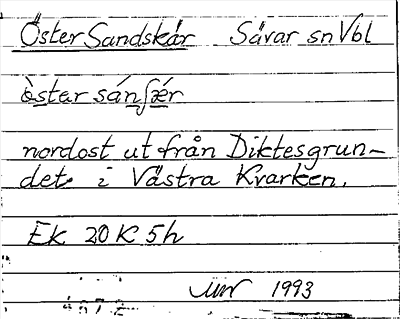 Öster Sandskär Sävar sn Vbl
östar sánʃǽr
nordost ut från Diktesgrun-
det i Västra Kvarken.
Ek 20 K 5 h
1993